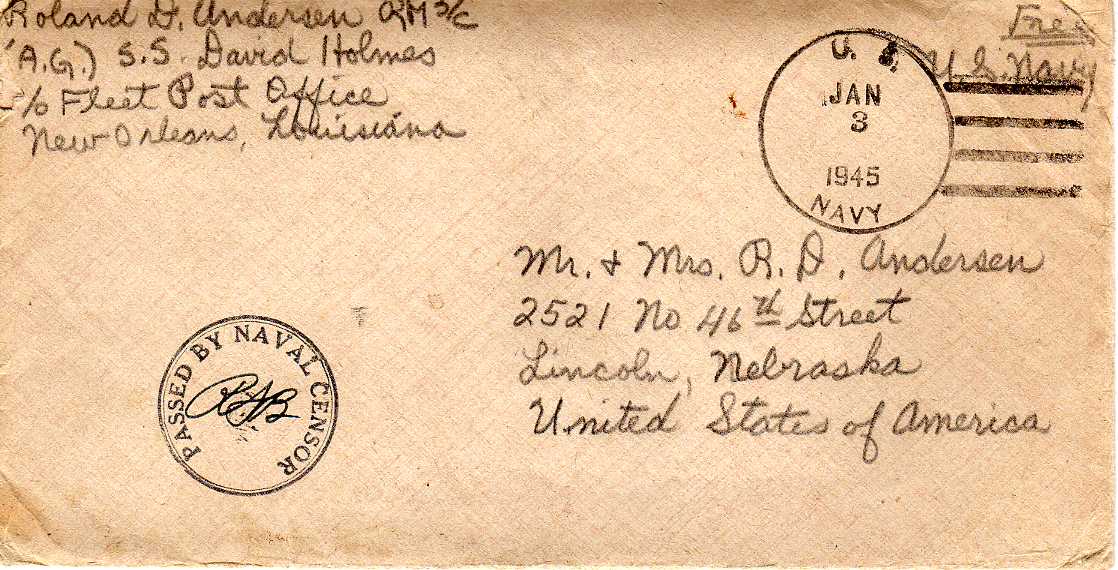 Roland D. Andersen QM 3/C
(A.G.) S.S. David Holmes
c/o Fleet Post Office
New Orleans, Louisiana
Free
U.S. Navy
U. S.
JAN
3
1945
NAVY
Mr. & Mrs. R. D. Andersen
2521 No 46th Street
Lincoln, Nebraska
United States of America
PASSED BY NAVAL CENSOR